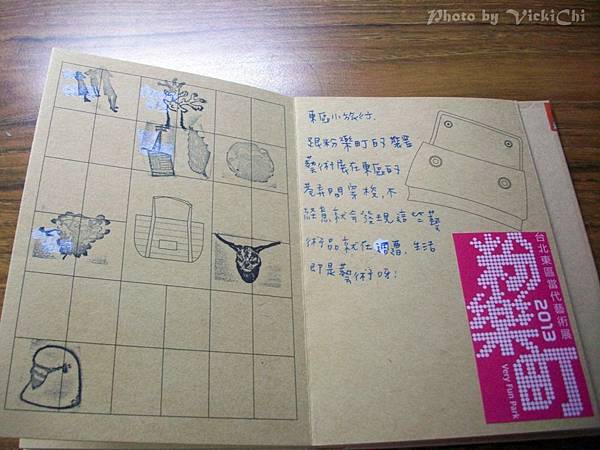 Photo by VickiChi
東區小旅行.
跟粉樂町的裝置
藝術展在東區的
巷弄間穿梭,不
經意就會發現這些藝
術品就在周遭,生活
即是藝術呀!
台北東區當代藝術展
2013
粉樂町
Very Fun Park